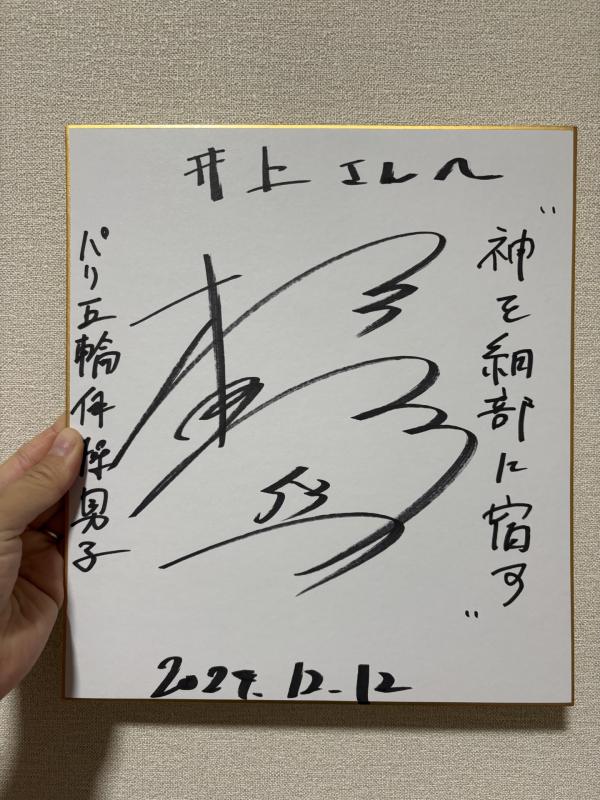 井上
“神を細部に宿す”
パリ五輪体操男子
2024.12.12